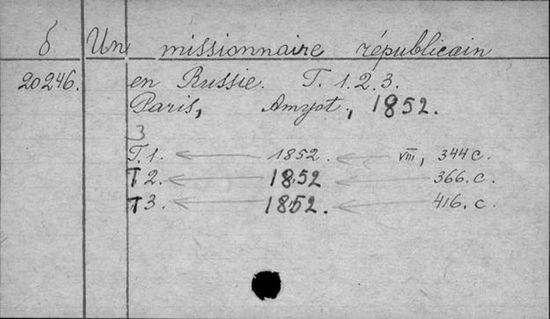 б Un missionnaire républicain
20246. en Russie. T. 1. 2. 3.
Paris, Amyot, 1852.
3
T. 1. 1852. VIII, 344 c.
T 2. 1852 366. c.
T 3. 1852. 416. c.